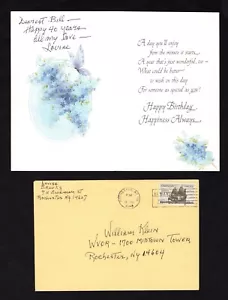 Dearest Bill —
Happy 40 years
all my love —
Louise
A day you'll enjoy
from the minute it starts,
A year that's just wonderful, too —
What could be better
to wish on this day
For someone as special as you!
Happy Birthday
Happiness Always...
Rochester, NY 14607
William Klein
WXXR - 1700 Midtown Tower
Rochester, NY 14604